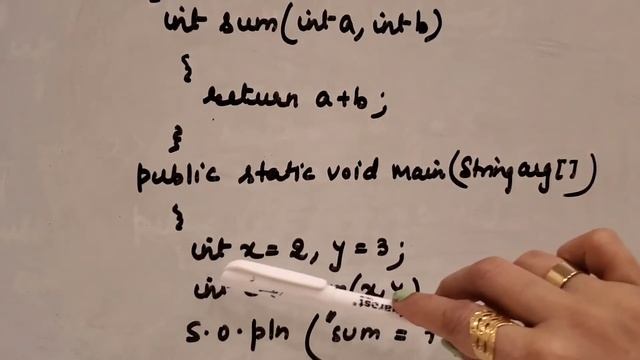 int sum(int a, int b)
{
return a+b;
}
public static void main(String arg[])
{
int x = 2, y = 3;
int (x,y)
S.o.pln ("sum = "